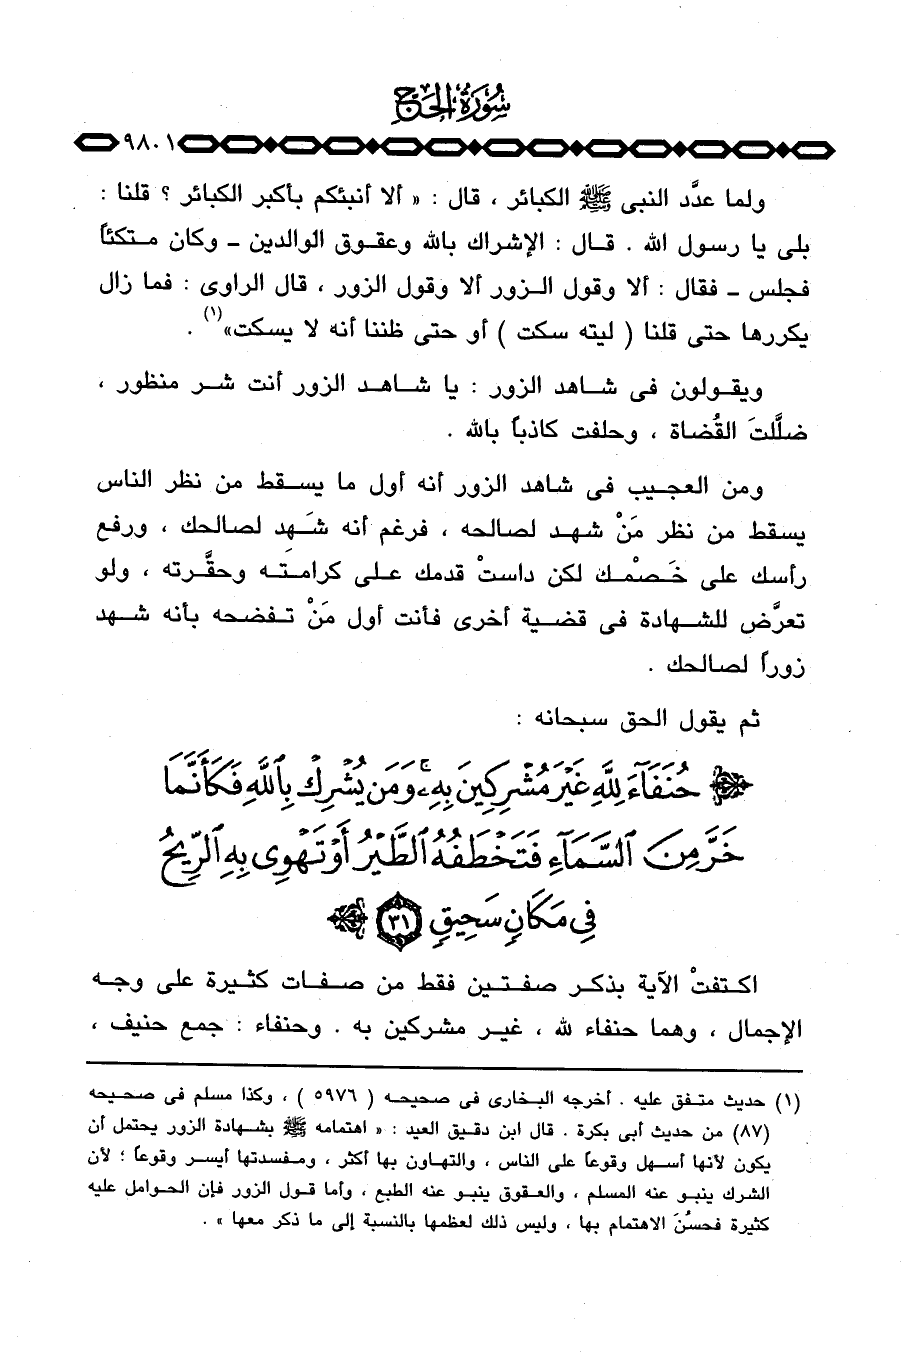 سُورَةُ الحَجِّ
٩٨٠١
ولما عدَّد النبى ﷺ الكبائر ، قال : « ألا أنبئكم بأكبر الكبائر ؟ قلنا :
بلى يا رسول الله . قال : الإشراك بالله وعقوق الوالدين ـ وكان متكئاً
فجلس ـ فقال : ألا وقول الزور ألا وقول الزور ، قال الراوى : فما زال
يكررها حتى قلنا ( ليته سكت ) أو حتى ظننا أنه لا يسكت»(١) .
ويقولون فى شاهد الزور : يا شاهد الزور أنت شر منظور ،
ضلَّلتَ القُضاة ، وحلفت كاذباً بالله .
ومن العجيب فى شاهد الزور أنه أول ما يسقط من نظر الناس
يسقط من نظر مَنْ شهد لصالحه ، فرغم أنه شَهِد لصالحك ، ورفع
رأسك على خَصْمك لكن داستْ قدمك على كرامته وحقَّرته ، ولو
تعرَّض للشهادة فى قضية أخرى فأنت أول مَنْ تفضحه بأنه شهد
زوراً لصالحك .
ثم يقول الحق سبحانه :
﴿ حُنَفَآءَ لِلَّهِ غَيْرَ مُشْرِكِينَ بِهِۦ وَمَن يُشْرِكْ بِٱللَّهِ فَكَأَنَّمَا
خَرَّ مِنَ ٱلسَّمَآءِ فَتَخْطَفُهُ ٱلطَّيْرُ أَوْ تَهْوِى بِهِ ٱلرِّيحُ
فِى مَكَانٍ سَحِيقٍ ٣١ ﴾
اكتفتْ الآية بذكر صفتين فقط من صفات كثيرة على وجه
الإجمال ، وهما حنفاء لله ، غير مشركين به . وحنفاء : جمع حنيف ،
(١) حديث متفق عليه . أخرجه البخارى فى صحيحه ( ٥٩٧٦ ) ، وكذا مسلم فى صحيحه
(٨٧) من حديث أبى بكرة . قال ابن دقيق العيد : « اهتمامه ﷺ بشهادة الزور يحتمل أن
يكون لأنها أسهل وقوعاً على الناس ، والتهاون بها أكثر ، ومفسدتها أيسر وقوعاً ؛ لأن
الشرك ينبو عنه المسلم ، والعقوق ينبو عنه الطبع ، وأما قول الزور فإن الحوامل عليه
كثيرة فحسُنَ الاهتمام بها ، وليس ذلك لعظمها بالنسبة إلى ما ذكر معها » .